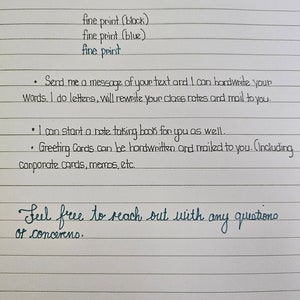 fine print (black)
fine print (blue)
fine print
• Send me a message of your text and I can handwrite your
words. I do letters, will rewrite your class notes and mail to you.
• I can start a note taking book for you as well.
• Greeting Cards can be handwritten and mailed to you. (Including
corporate cards, memos, etc.
Feel free to reach out with any questions
or concerns.